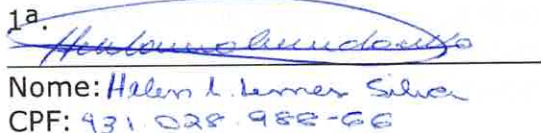 1ª.
Nome: Helen L. Lemes Silva
CPF: 931.028.988-66